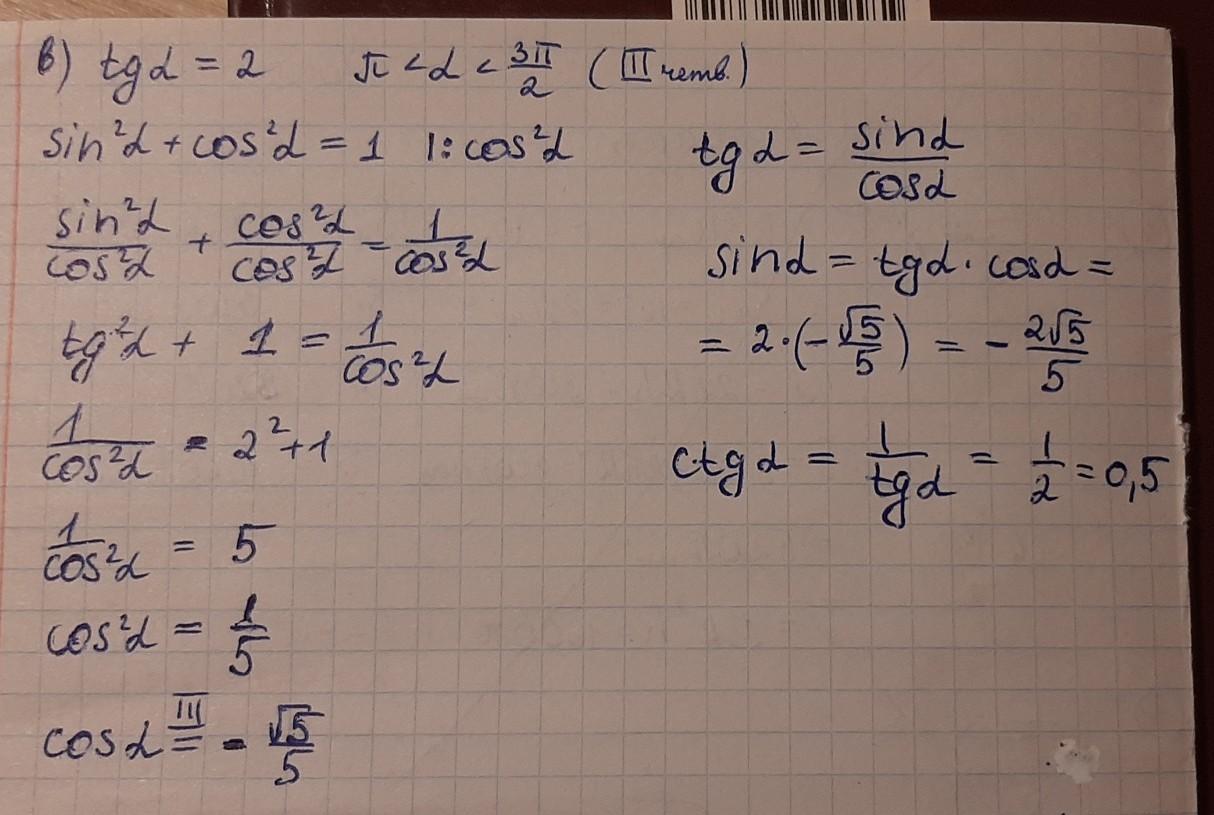 в) tg α = 2   π < α < 3π/2 (III четв.)
sin²α + cos²α = 1 |: cos²α
sin²α/cos²α + cos²α/cos²α = 1/cos²α
tg²α + 1 = 1/cos²α
1/cos²α = 2² + 1
1/cos²α = 5
cos²α = 1/5
cos α =(III) - √5/5
tg α = sin α/cos α
sin α = tg α · cos α =
= 2·(-√5/5) = -2√5/5
ctg α = 1/tg α = 1/2 = 0,5